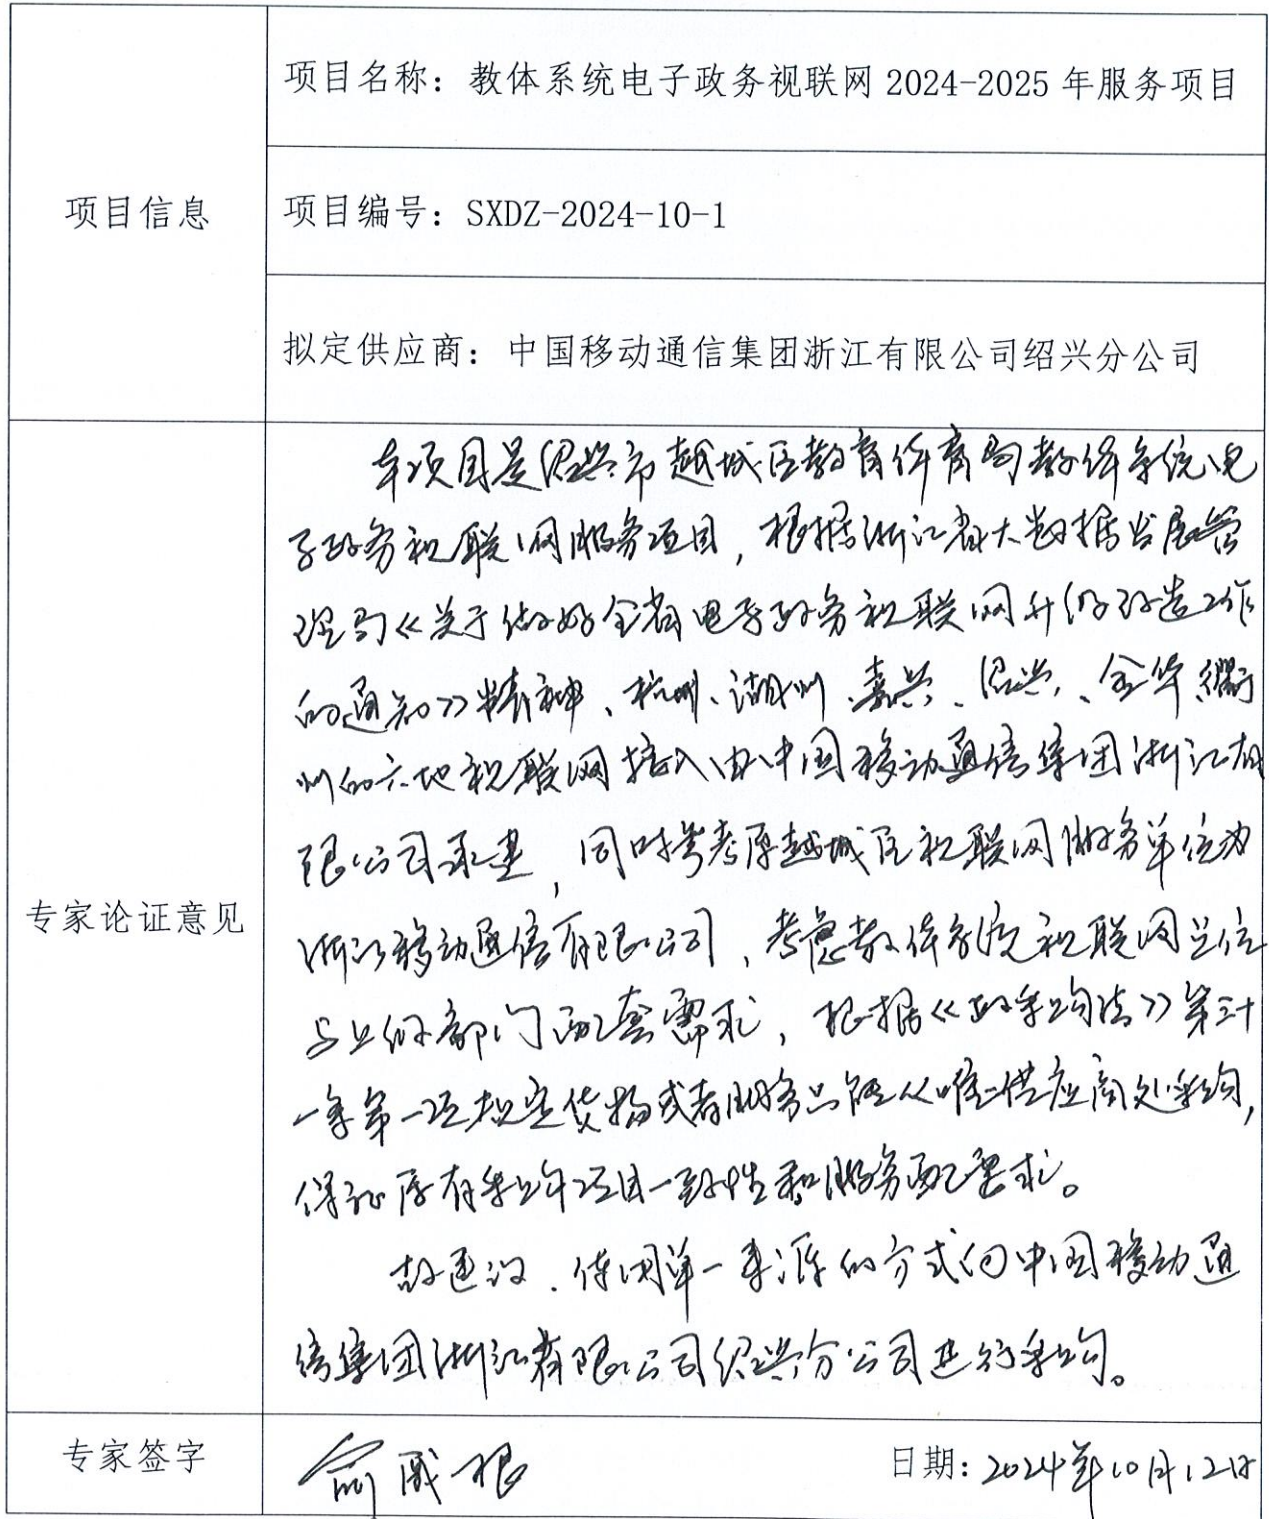 项目信息
项目名称：教体系统电子政务视联网 2024-2025 年服务项目
项目编号：SXDZ-2024-10-1
拟定供应商：中国移动通信集团浙江有限公司绍兴分公司
专家论证意见
本项目是绍兴市越城区教育体育局教体系统电
子政务视联网服务项目，根据浙江省大数据发展管
理局《关于做好全省电子政务视联网升级改造工作
的通知》精神、杭州、湖州、嘉兴、绍兴、金华、衢
州的六地视联网接入由中国移动通信集团浙江有
限公司承建，同时参考原越城区视联网服务单位为
浙江移动通信有限公司，考虑教体系统视联网
与上级部门配套需求，根据《政采购法》第三十
一条第一项规定货物或者服务只能从唯一供应商处采购，
保证原有采购项目一致性和服务配要求。
故建议．使用单一来源的方式向中国移动通
信集团浙江有限公司绍兴分公司进行采购。
专家签字
日期：2024年10月12日